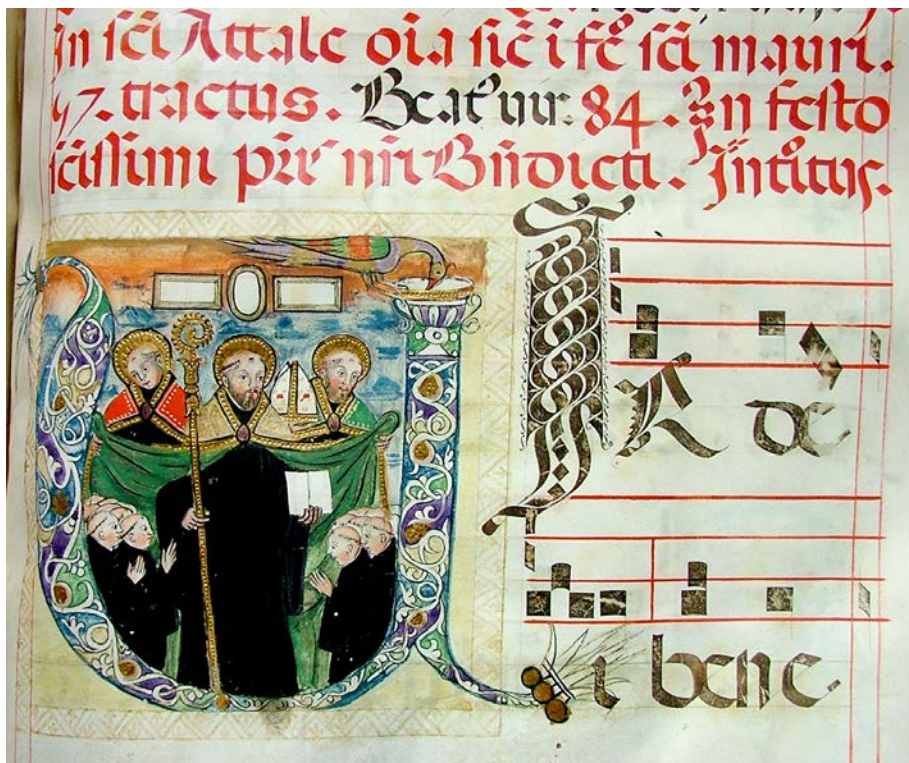 In ſc̄i Attale oīa ſic̄ i fe᷎ ſc̄i mauri.
47. tractus. Beat᷒ uir. 84. In feſto
ſc̄iſſimi pr̄is nr̄i Bn̄dicti. Intitus.
UIR de
i bene